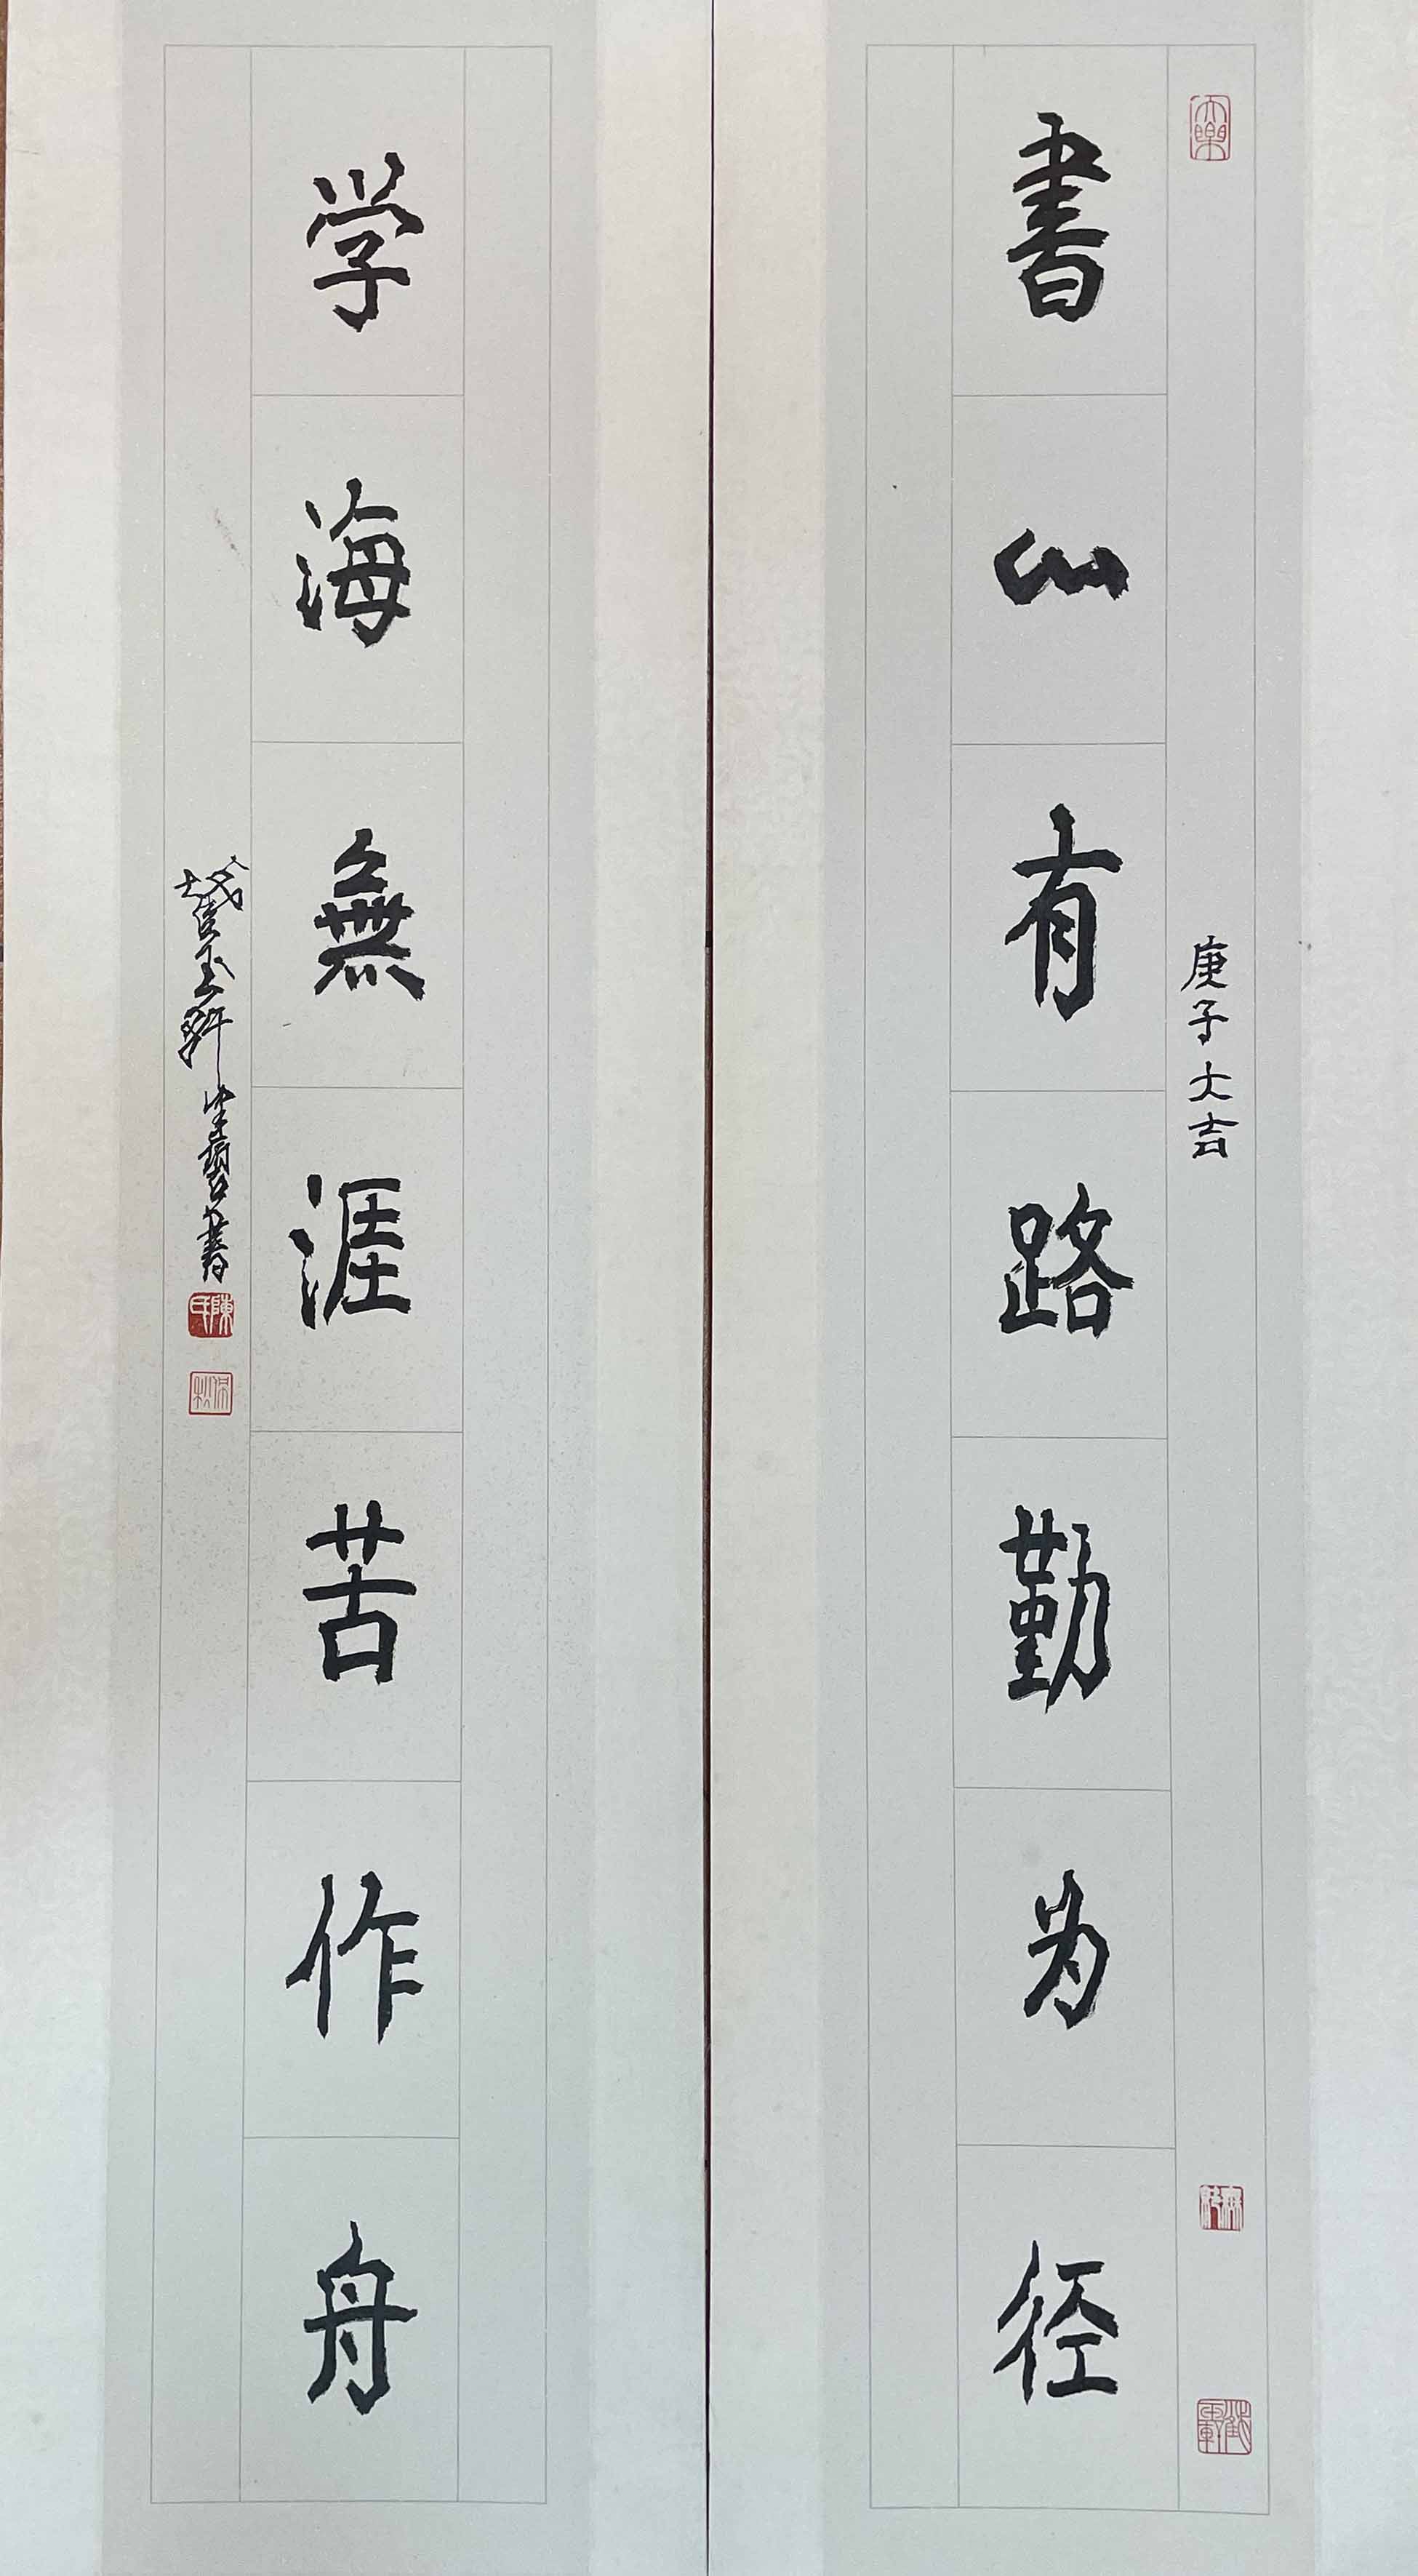 書山有路勤为径
庚子大吉
学海無涯苦作舟